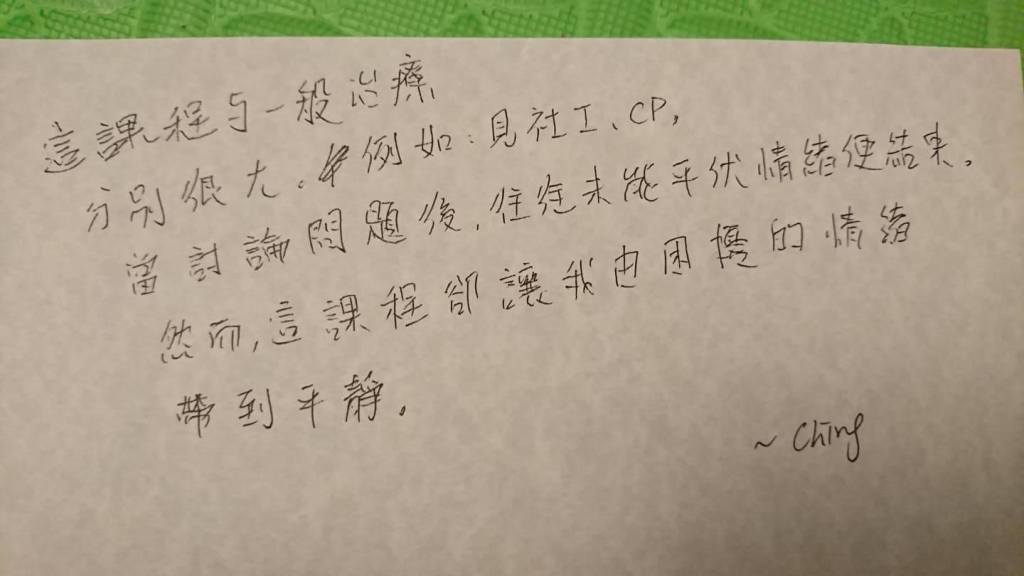 這課程与一般治療
分別很大。例如:見社工、CP,
當討論問題後,往往未能平伏情緒便結束。
然而,這課程卻讓我由困擾的情緒
帶到平靜。
~ Ching